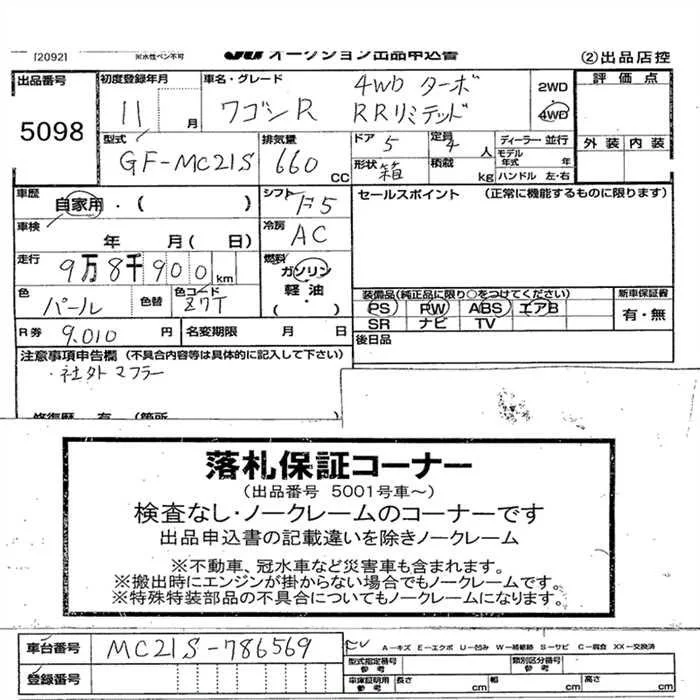 [2092]
※水性ペン不可
JU オークション出品申込書
②出品店控
出品番号
5098
初度登録年月
11 月
車名・グレード
ワゴンR
4WD ターボ
RRリミテッド
2WD
4WD
評価点
外装 内装
型式
GF-MC21S
排気量
660 CC
ドア 5
定員 4 人
形状 箱
積載 kg
ディーラー・並行
モデル年式 年
ハンドル 左・右
車歴
自家用・( )
シフト
F5
セールスポイント (正常に機能するものに限ります)
車検
年 月 ( 日)
冷房
AC
走行
9万8千900km
燃料
ガソリン
軽・油
( )
色
パール
色替
色コード
Z7T
装備品(純正品に限り○をつけてください)
PS PW ABS エアB
SR ナビ TV
新車保証書
有・無
R券 9.010 円
名変期限 月 日
後日品
注意事項申告欄 (不具合内容等は具体的に記入して下さい)
・社外マフラー
修復歴 有 (箇所
落札保証コーナー
(出品番号 5001号車～)
検査なし・ノークレームのコーナーです
出品申込書の記載違いを除きノークレーム
※不動車、冠水車など災害車も含まれます。
※搬出時にエンジンが掛からない場合でもノークレームです。
※特殊特装部品の不具合についてもノークレームになります。
車台番号 MC21S-786569
登録番号
A－キズ E－エクボ U－凹み W－補修跡 S－サビ C－腐食 XX－交換済
型式指定番号 参考
類別区分番号 参考
車庫証明用 参考
長さ cm
幅 cm
高さ cm